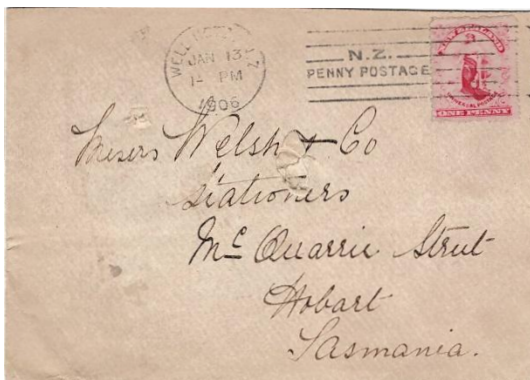 WELLINGTON N Z
JAN 13
1- PM
1906
N.Z.
PENNY POSTAGE
NEW ZEALAND
UNIVERSAL POSTAGE
ONE PENNY
Messrs Welsh & Co
Stationers
Mc Quarrie Street
Hobart
Tasmania.